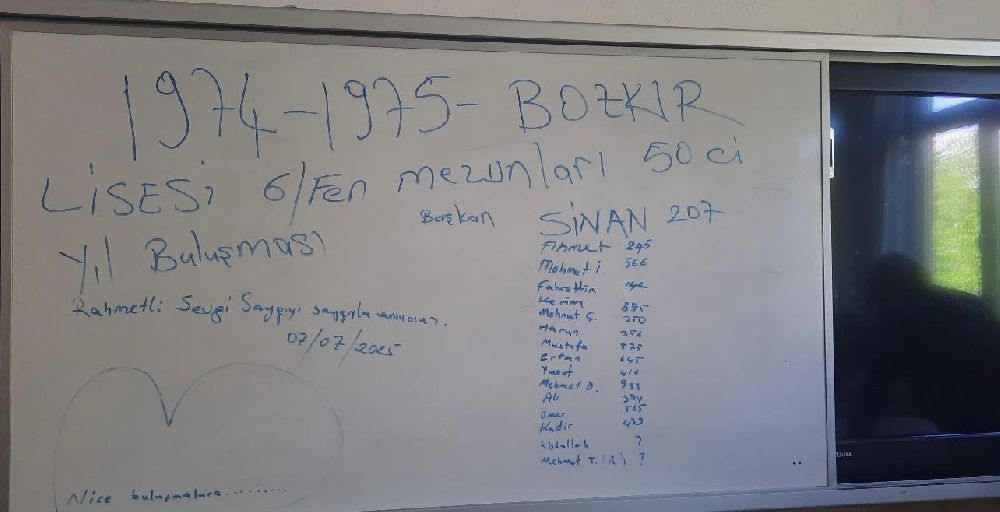 1974-1975- BOZKIR
LİSESİ 6/Fen mezunları 50 ci
Yıl Buluşması
Rahmetli Sevgi Saygıyı saygıyla anıyoruz.
07/07/2025
Başkan SİNAN 207
Ahmet 245
Mehmet İ. 566
Fahrettin
Kerim 385
Mehmet Ç. 250
Harun 356
Mustafa 835
Ertan 645
Yusuf 416
Mehmet D. 933
Ali 384
Ömer 565
Kadir 439
Abdullah ?
Mehmet T. (R) ?
Nice buluşmalara........
VESTEL